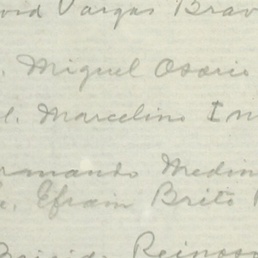 Vargas Brav
. Miguel Osorio
l. Marcelino In
rmando Medin
a. Efrain Brito
Reinoso